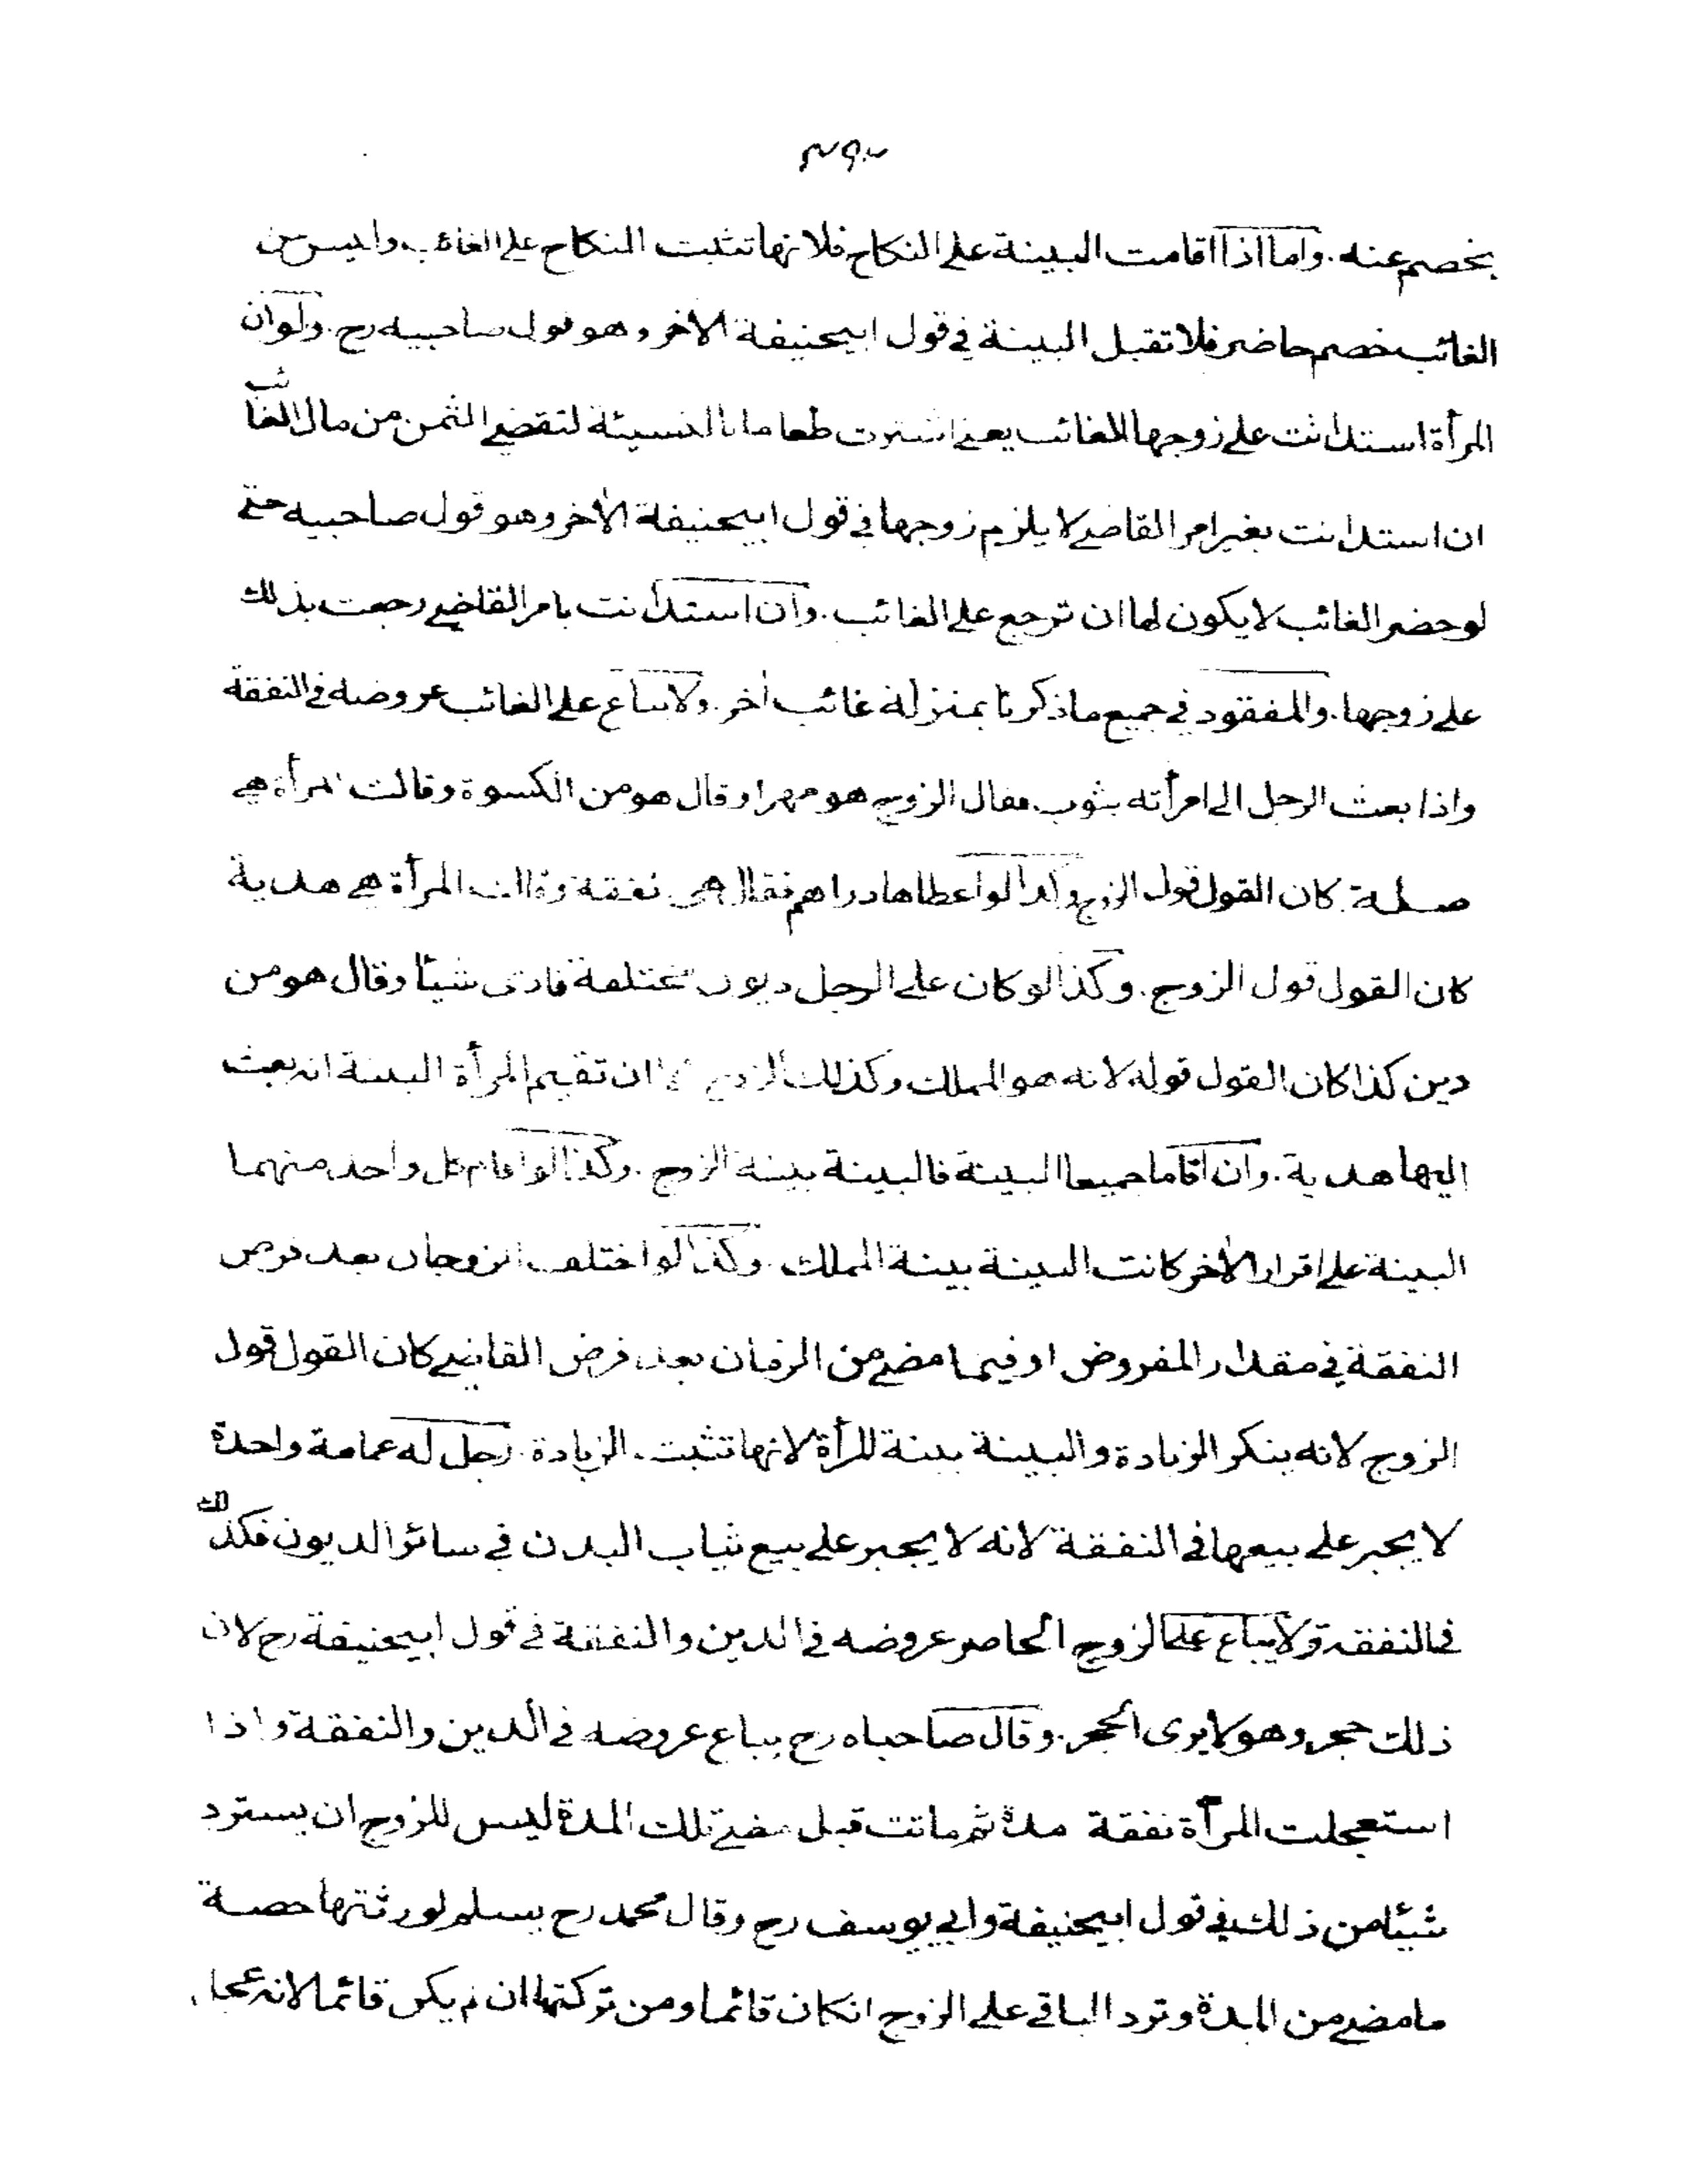 بخصم عنه. واما اذا اقامت البينة على النكاح فلانها تثبت النكاح على الغائب وليس عن
الغائب خصم حاضر فلا تقبل البينة في قول ابيحنيفة الآخر وهو قول صاحبيه رح. ولو ان
المرأة استدانت على زوجها الغائب يعني اشترت طعاما بالنسيئة لتقضي الثمن من مال الغائب
ان استدانت بغير امر القاضي لا يلزم زوجها في قول ابيحنيفة الآخر وهو قول صاحبيه حتى
لو حضر الغائب لا يكون لها ان ترجع على الغائب. وان استدانت بامر القاضي رجعت بذلك
على زوجها. والمفقود في جميع ما ذكرنا بمنزلة غائب آخر. ولا يباع على الغائب عروضه في النفقة
واذا بعث الرجل الى امرأته بثوب فقال الزوج هو مهر او قال هو من الكسوة وقالت المرأة هي
صلة كان القول قول الزوج وكذا لو اعطاها دراهم فقال هي نفقة وقالت المرأة هي هدية
كان القول قول الزوج. وكذا لو كان على الرجل ديون مختلفة فادى شيئا وقال هو من
دين كذا كان القول قوله لانه هو المملك وكذلك الزوج ان تقيم المرأة البينة انه بعث
اليها هدية. وان اقاما جميعا البينة فالبينة بينة الزوج. وكذا لو اقام كل واحد منهما
البينة على اقرار الآخر كانت البينة بينة المملك. وكذا لو اختلف الزوجان بعد فرض
النفقة في مقدار المفروض او فيما مضى من الزمان بعد فرض القاضي كان القول قول
الزوج لانه ينكر الزيادة والبينة بينة المرأة لانها تثبت الزيادة. رجل له عمامة واحدة
لا يجبر على بيعها في النفقة لانه لا يجبر على بيع ثياب البدن في سائر الديون فكذلك
في النفقة ولا يباع على الزوج الحاضر عروضه في الدين والنفقة في قول ابيحنيفة رح لان
ذلك حجر وهو لا يرى الحجر. وقال صاحباه رح يباع عروضه في الدين والنفقة واذا
استعجلت المرأة نفقة مدة ثم ماتت قبل مضي تلك المدة ليس للزوج ان يسترد
شيئا من ذلك في قول ابيحنيفة وابي يوسف رح وقال محمد رح يسلم لورثتها حصة
ما مضى من المدة وترد الباقي على الزوج انكان قائما ومن تركتها ان لم يكن قائما لانه عجل